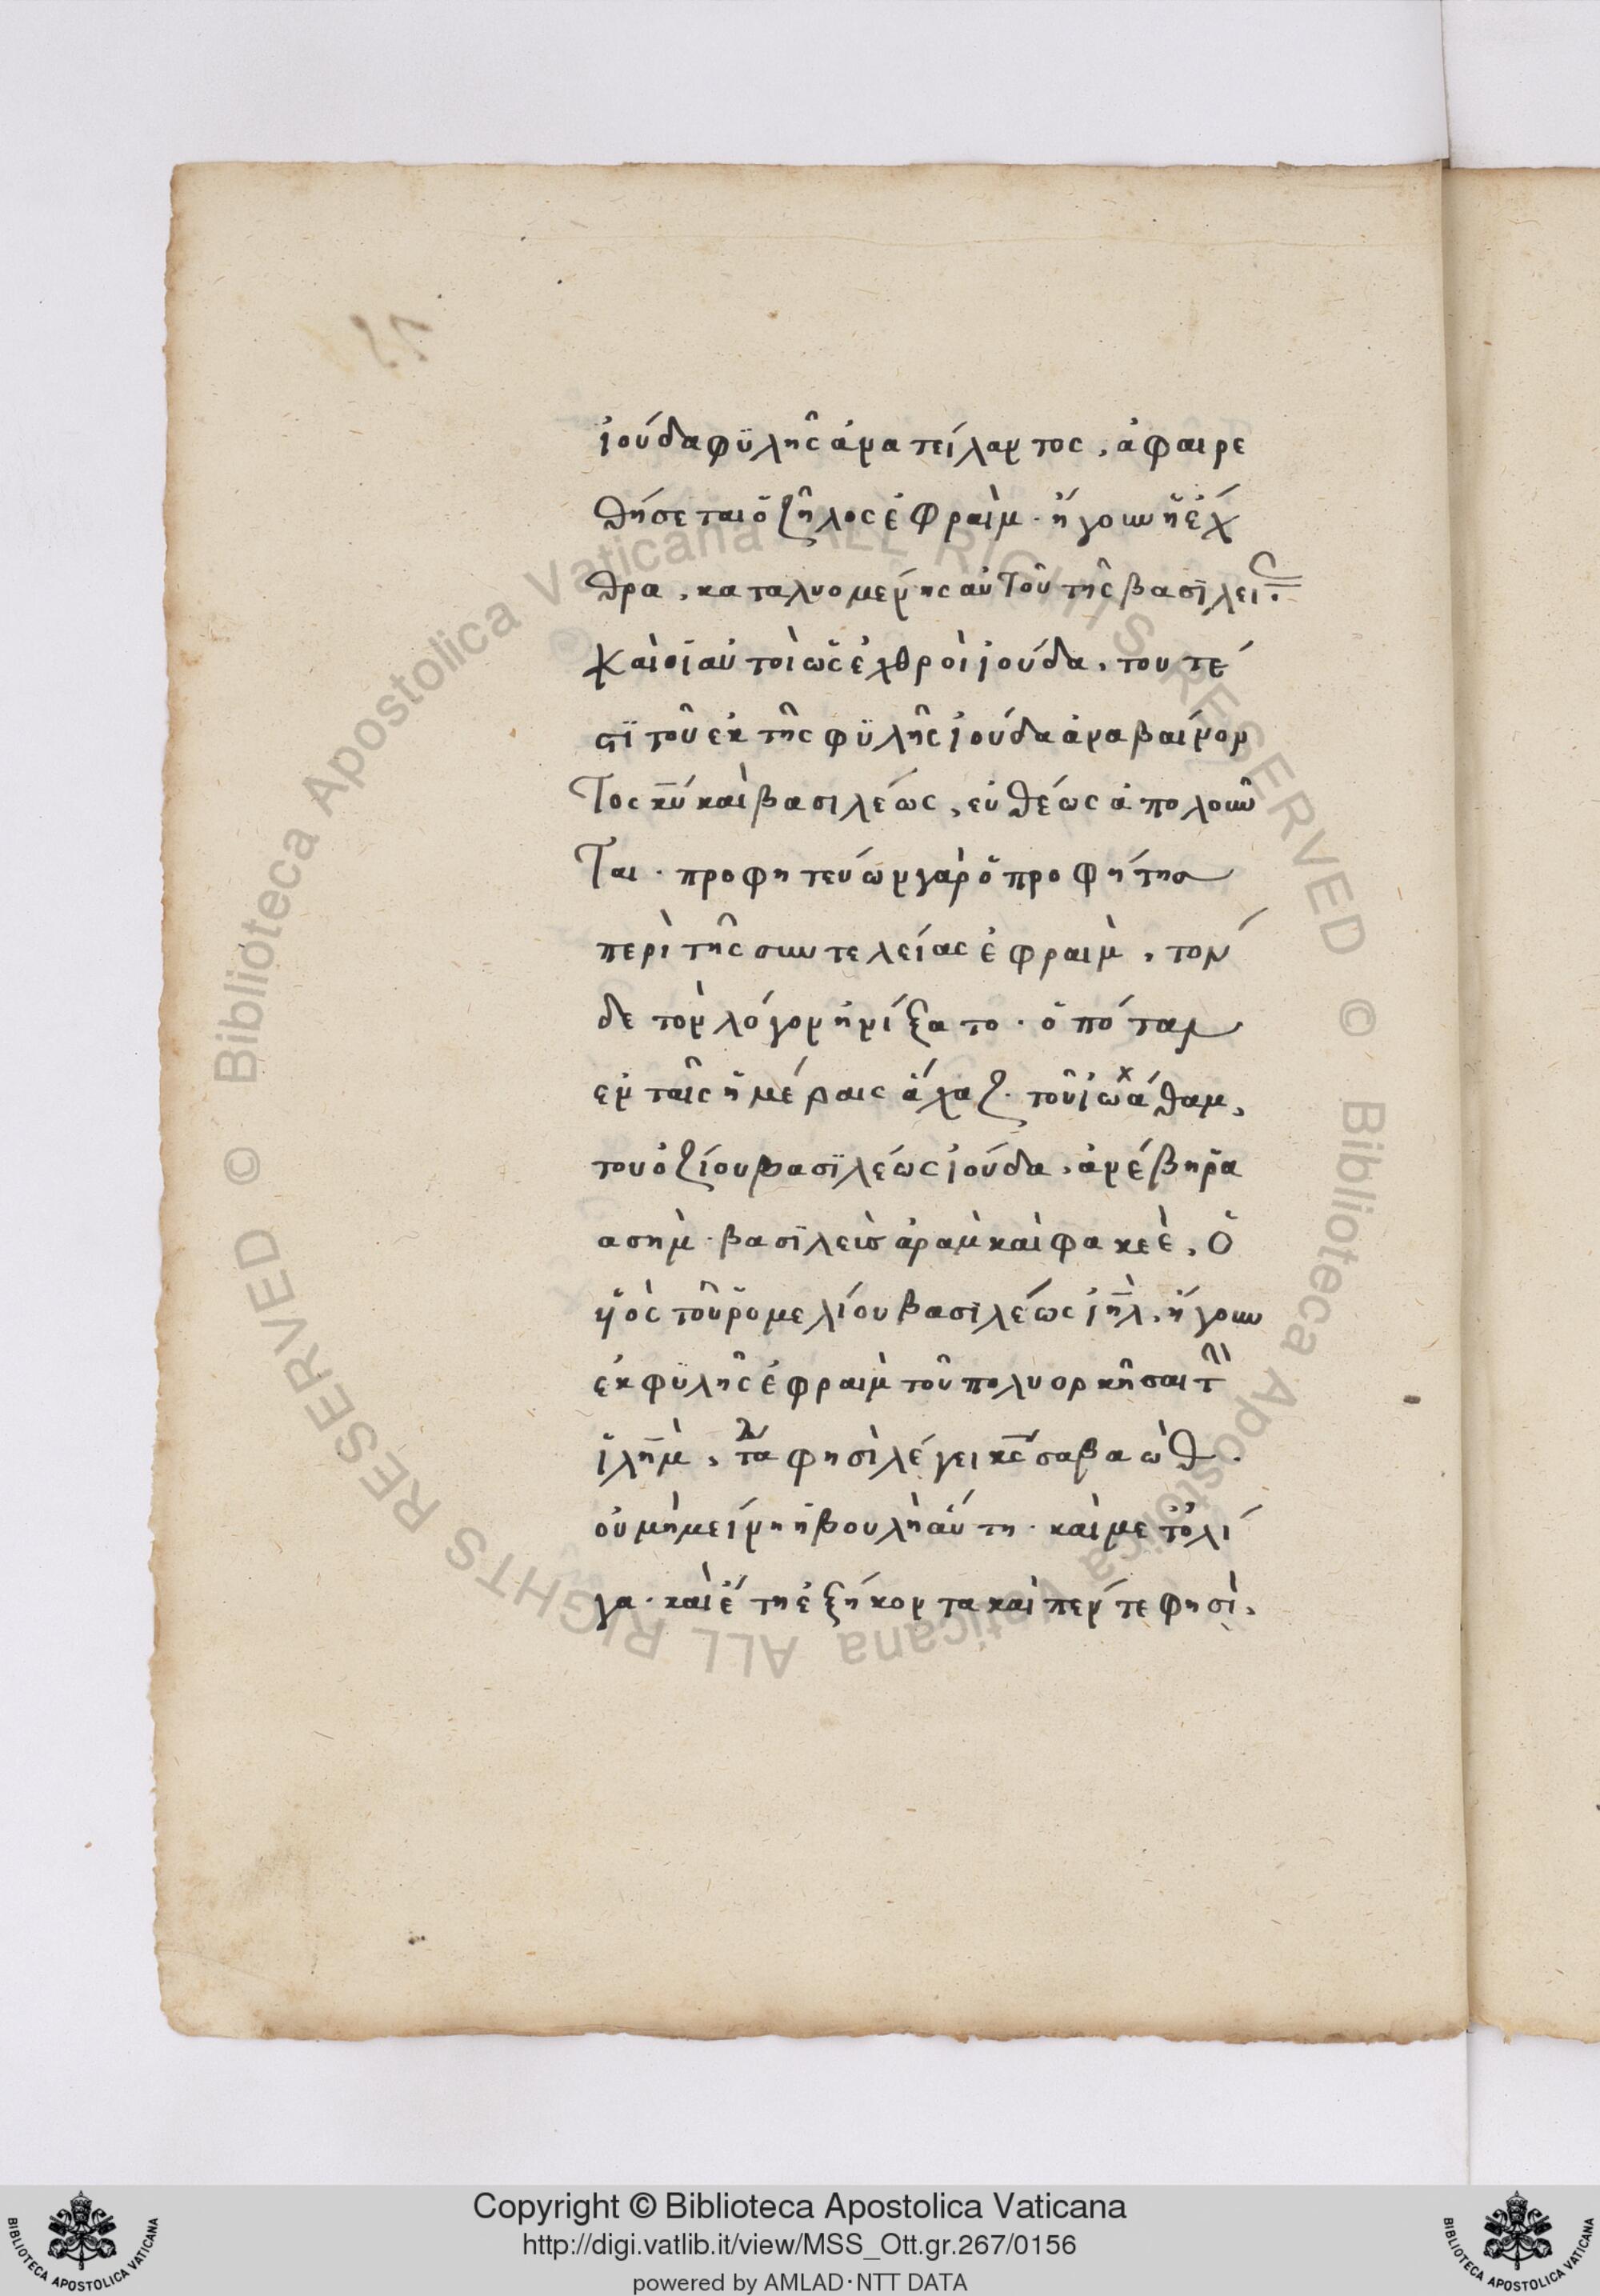 ἰούδα φϋλῆς ἀνατείλαντος, ἀφαιρε
θήσεται ὁ ζῆλος ἐφραὶμ· ἤγουν ἡ ἔχ
θρα, καταλυομένης αὐτοῦ τῆς βασϊλεί
καὶ οἱ αὐτοὶ ὡς ἐχθροὶ ἰούδα, τουτέ
στϊ τοῦ ἐκ τῆς φϋλῆς ἰούδα ἀναβαίνον
τος κ̅υ̅ καὶ βασιλέως, εὐθέως ἀπολοῦν
ται· προφητεύων γὰρ ὁ προφήτης
περὶ τῆς συντελείας ἐφραὶμ, τόν
δε τὸν λόγον ἠνίξατο· ὁπόταν
ἐν ταῖς ἡμέραις ἄχαζ· τοῦ ἰωάθαμ,
του ὀζίου βασϊλέως ἰούδα, ἀνέβη ῥα
ασὴμ· βασϊλεὺς ἀρὰμ καὶ φακεὲ, ὁ
ϋἱὸς τοῦ ῥομελίου βασϊλέως ἰ̅η̅λ̅, ἤγουν
ἐκ φϋλῆς ἐφραὶμ τοῦ πολυορκῆσαι τὴν
ἰ̅λ̅η̅μ̅, τα φησὶ λέγει κ̅ς̅ σαβαώθ·
οὐ μὴ μείνη ἡ βουλὴ αὕτη· καὶ μετ' ὀλί
γα· καὶ ἔτη ἑξήκοντα καὶ πέντε φησὶ,
Copyright © Biblioteca Apostolica Vaticana
http://digi.vatlib.it/view/MSS_Ott.gr.267/0156
powered by AMLAD·NTT DATA